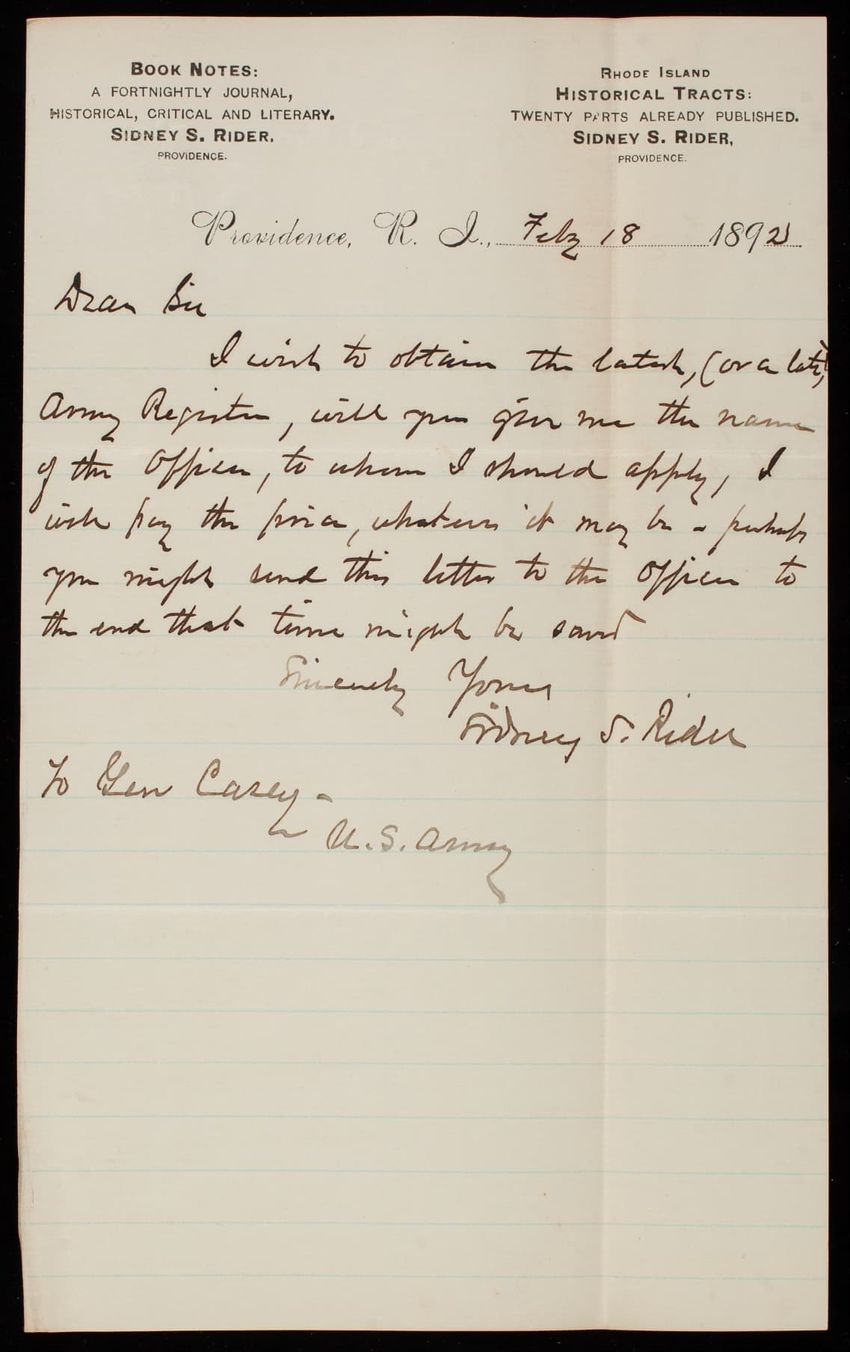 BOOK NOTES:
A FORTNIGHTLY JOURNAL,
HISTORICAL, CRITICAL AND LITERARY.
SIDNEY S. RIDER,
PROVIDENCE.
RHODE ISLAND
HISTORICAL TRACTS:
TWENTY PARTS ALREADY PUBLISHED.
SIDNEY S. RIDER,
PROVIDENCE.
Providence, R. I., Feby 18 1892
Dear Sir
I wish to obtain the latest, (or a late)
Army Register, will you give me the name
of the Officer, to whom I should apply, I
will pay the price, whatever it may be - perhaps
you might send this letter to the Officer to
the end that time might be saved
Sincerely Yours
Sidney S. Rider
To Gen Casey -
U.S. Army